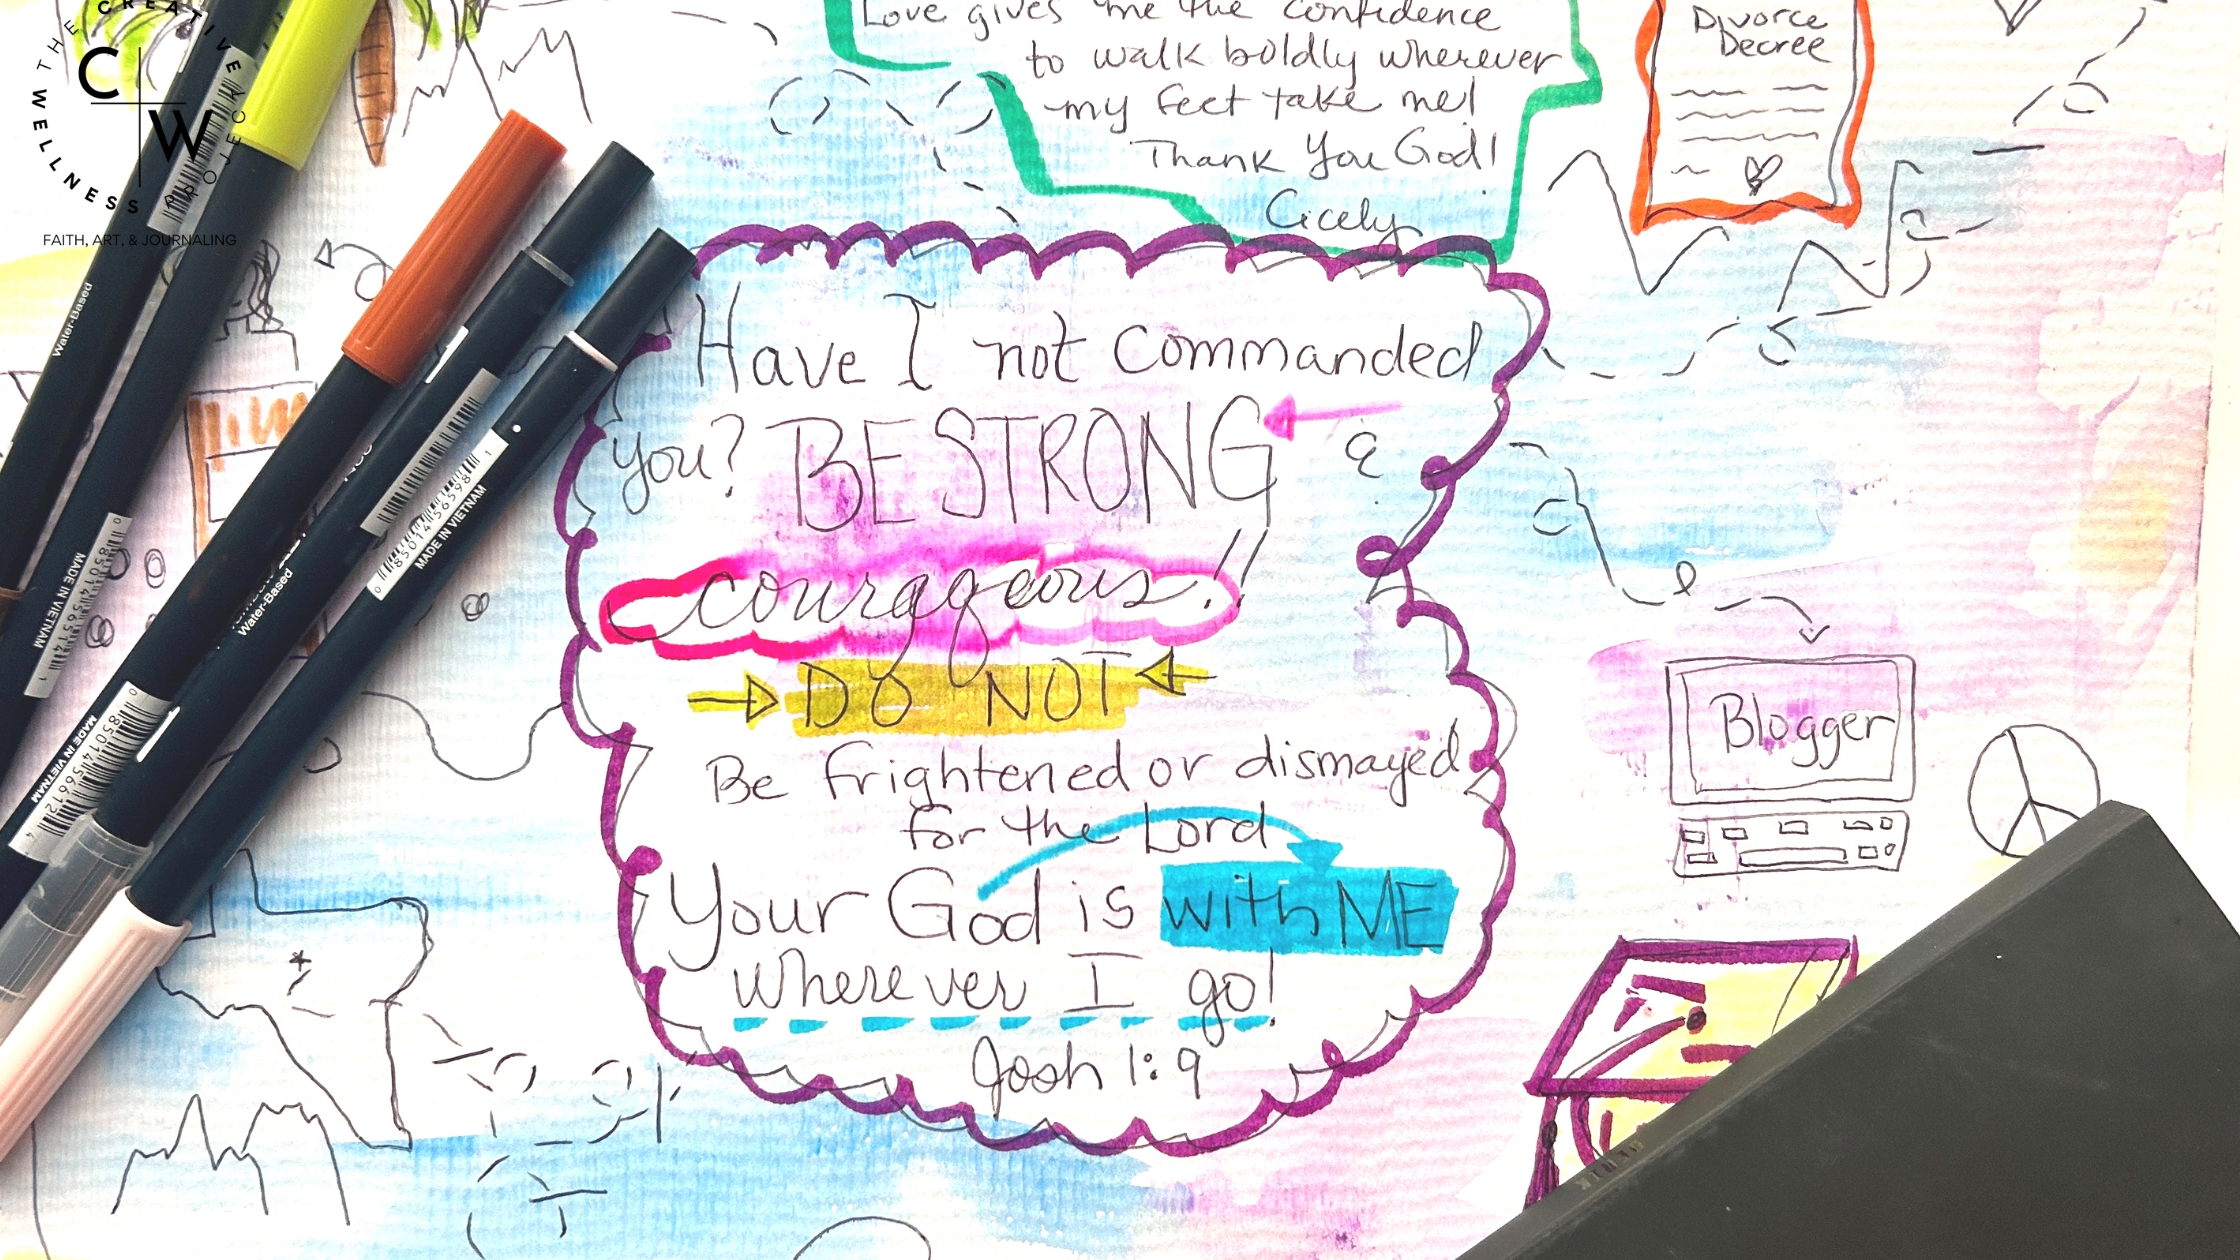 THE CREATIVE WELLNESS PROJECT
C
W
FAITH, ART, & JOURNALING
Love gives me the confidence
to walk boldly wherever
my feet take me!
Thank You God!
Cicely
Divorce
Decree
Have I not commanded
you? BE STRONG
&
courageous!!
DO NOT
Be frightened or dismayed
for the Lord
Your God is with ME
wherever I go!
Josh 1:9
Blogger
Water-Based
MADE IN VIETNAM
Water-Based
MADE IN VIETNAM
MADE IN VIETNAM